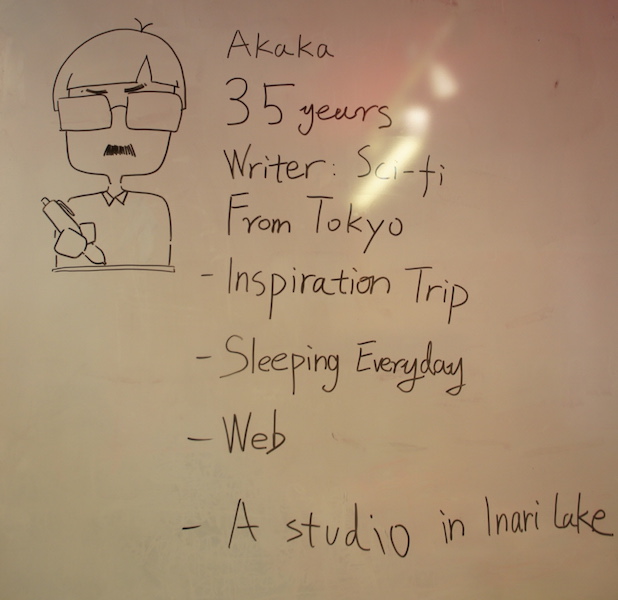 Akaka
35 years
Writer: Sci-fi
From Tokyo
- Inspiration Trip
- Sleeping Everyday
- Web
- A studio in Inari Lake